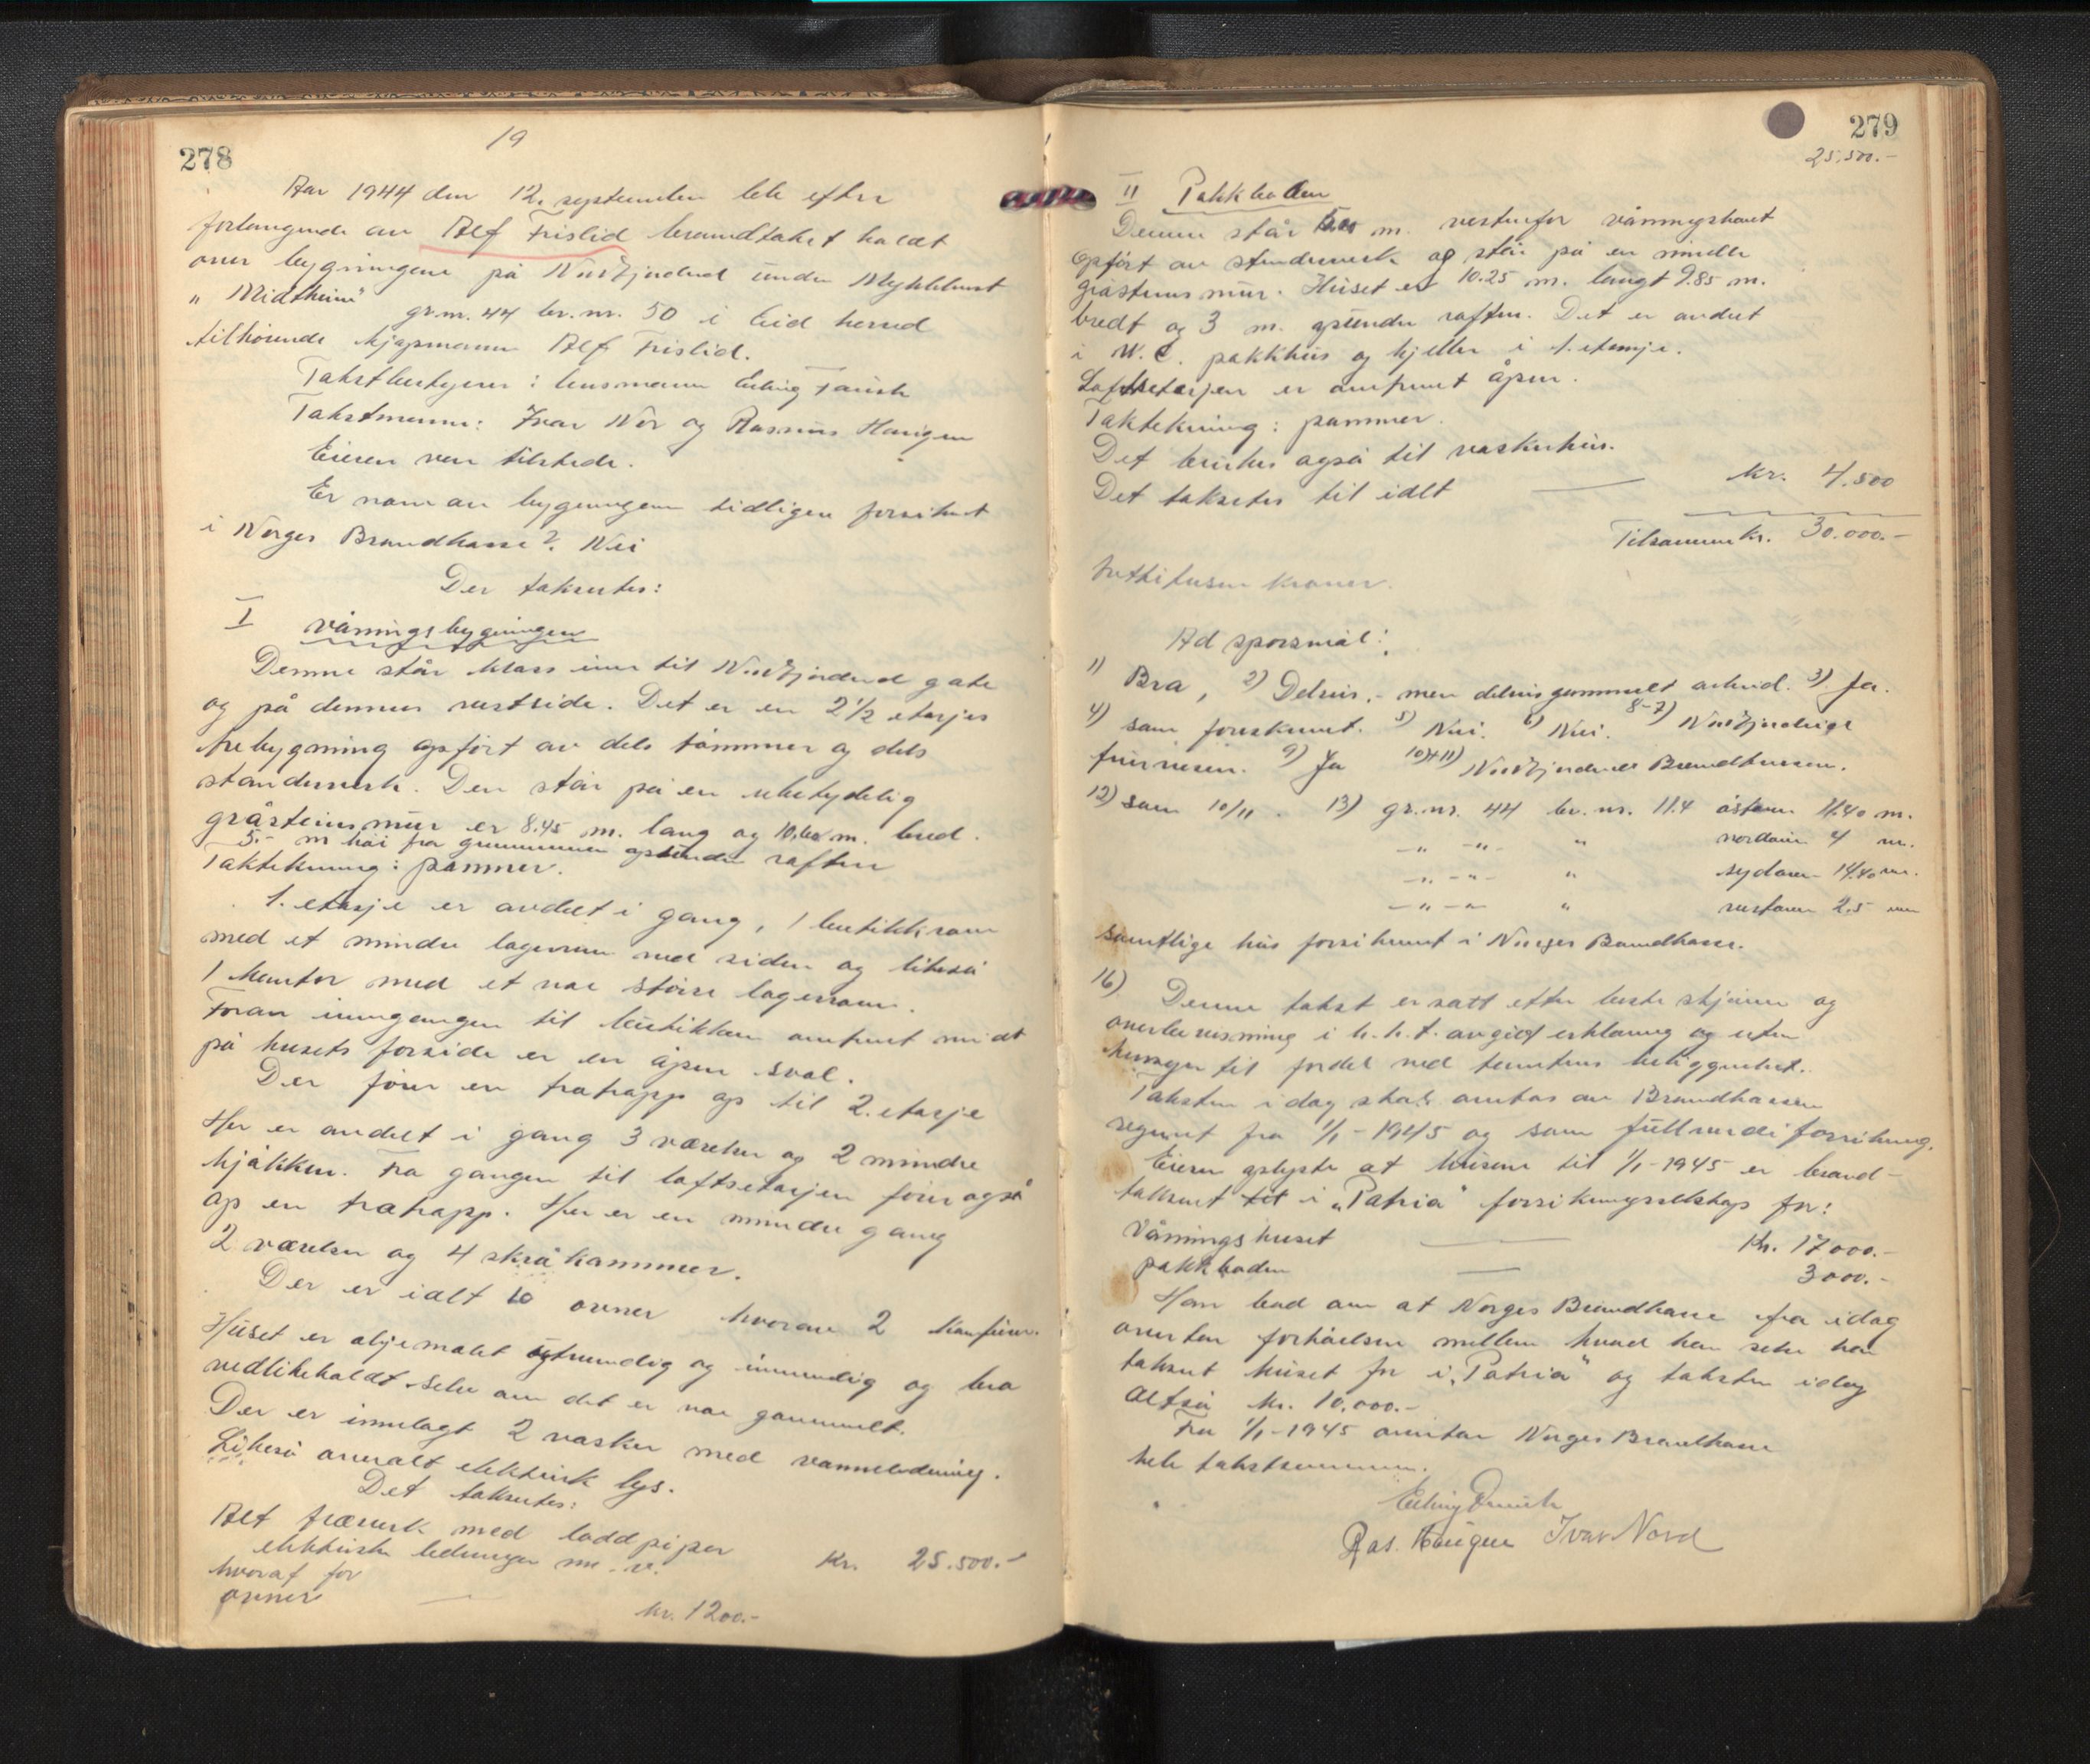 278
19
Aar 1944 den 12. september ble efter
forlangende av Alf Frislid brandtakst holdt
over bygningene på Nordfjordeid under Myklebust
"Midtheim" gr.nr. 44 br.nr. 50 i Eid herred
tilhørende kjøpmann Alf Frislid.
Takstbestyrer: lensmann Erling
Takstmenn: Ivar Nor og Rasmus Haugen
Eieren var tilstede.
Er noen av bygningene tidligere forsikret
i Norges Brandkasse? Nei
Der takseres:
I våningsbygningen
Denne står klass inn til Nordfjordeid gate
og på dennes vestside. Det er en 2 1/2 etasjes
trebygning opført av dels tømmer og dels
standerverk. Den står på en ubetydelig
gråsteins mur er 8.45 m. lang og 10.60 m. bred.
5.- m høi fra grunnmuren op under raften
Taktekning: panner.
1. etasje er avdelt i gang, 1 butikkrom
med et mindre lagerrum ved siden og likeså
1 kontor med et noe større lagerrom.
Foran inngangen til butikken omtrent midt
på husets forside er en åpen sval.
Der fører en tratrapp op til 2. etasje
Her er avdelt i gang 3 værelser og 2 mindre
kjøkken. Fra gangen til loftsetasjen fører også
op en tratrapp. Her er en mindre gang
2 værelser og 4 skråkammer.
Der er ialt 10 ovner hvorav 2 komfurer.
Huset er oljemalet utvendig og innvendig og bra
vedlikeholdt selv om det er noe gammelt.
Der er innelagt 2 vasker med vannledning.
Likeså overalt elektrisk lys.
Det takseres:
Alt træverk med loddpiper
elektriske ledninger m. v. Kr. 25.500.-
hvoraf for
ovner — kr. 1200.-
279
25.500.-
II Pakkboden
Denne står 5.00 m. vestenfor våningshuset
opført av standerverk og står på en mindre
gråsteins mur. Huset er 10.25 m. langt 9.85 m.
bredt og 3 m. op under raften. Det er avdelt
i W.C. pakkhus og kjeller i 1. etasje.
Loftsetasjen er omtrent åpen.
Taktekning: panner.
Det brukes også til vaskehus.
Det takseres til ialt — kr. 4.500
Tilsammen kr. 30.000.-
Trettitusen kroner.
Ad spørsmål:
1) Bra, 2) Delvis,- men delvis gammelt arbeid. 3) Ja.
4) som foreskrevet. 5) Nei. 6) Nei. 8-7) Nordfjordeid
9) Ja 10)+11) Nordfjordeid Brandkasse.
12) som 10/11. 13) gr.nr. 44 br.nr. 114 østover 11.40 m.
-"- -"- " nordover 4 m.
-"- -"- " sydover 14.40 m.
-"- -"- " vestover 2.5 m
samtlige hus forsikret i Norges Brandkasse.
16) Denne takst er satt efter beste skjønn og
overbevisning i h. h. t. avgitt erklæring og uten
hensyn til fordel ved tomtens beliggenhet.
Taksten idag skal antas av Brandkassen
regnet fra 1/1-1945 og som fullverdiforsikring.
Eieren oplyste at husene til 1/1-1945 er brand-
taksert til i "Patria" forsikringsselskap for:
Våningshuset — Kr. 17000.-
pakkboden — 3000.-
Han bad om at Norges Brandkasse fra idag
overtar forhøielsen mellem hvad han selv har
taksert huset for i "Patria" og taksten idag
Altså kr. 10.000.-
Fra 1/1-1945 overtar Norges Brandkasse
hele takstsummen.
Erling
Ras. Haugen Ivar Nord